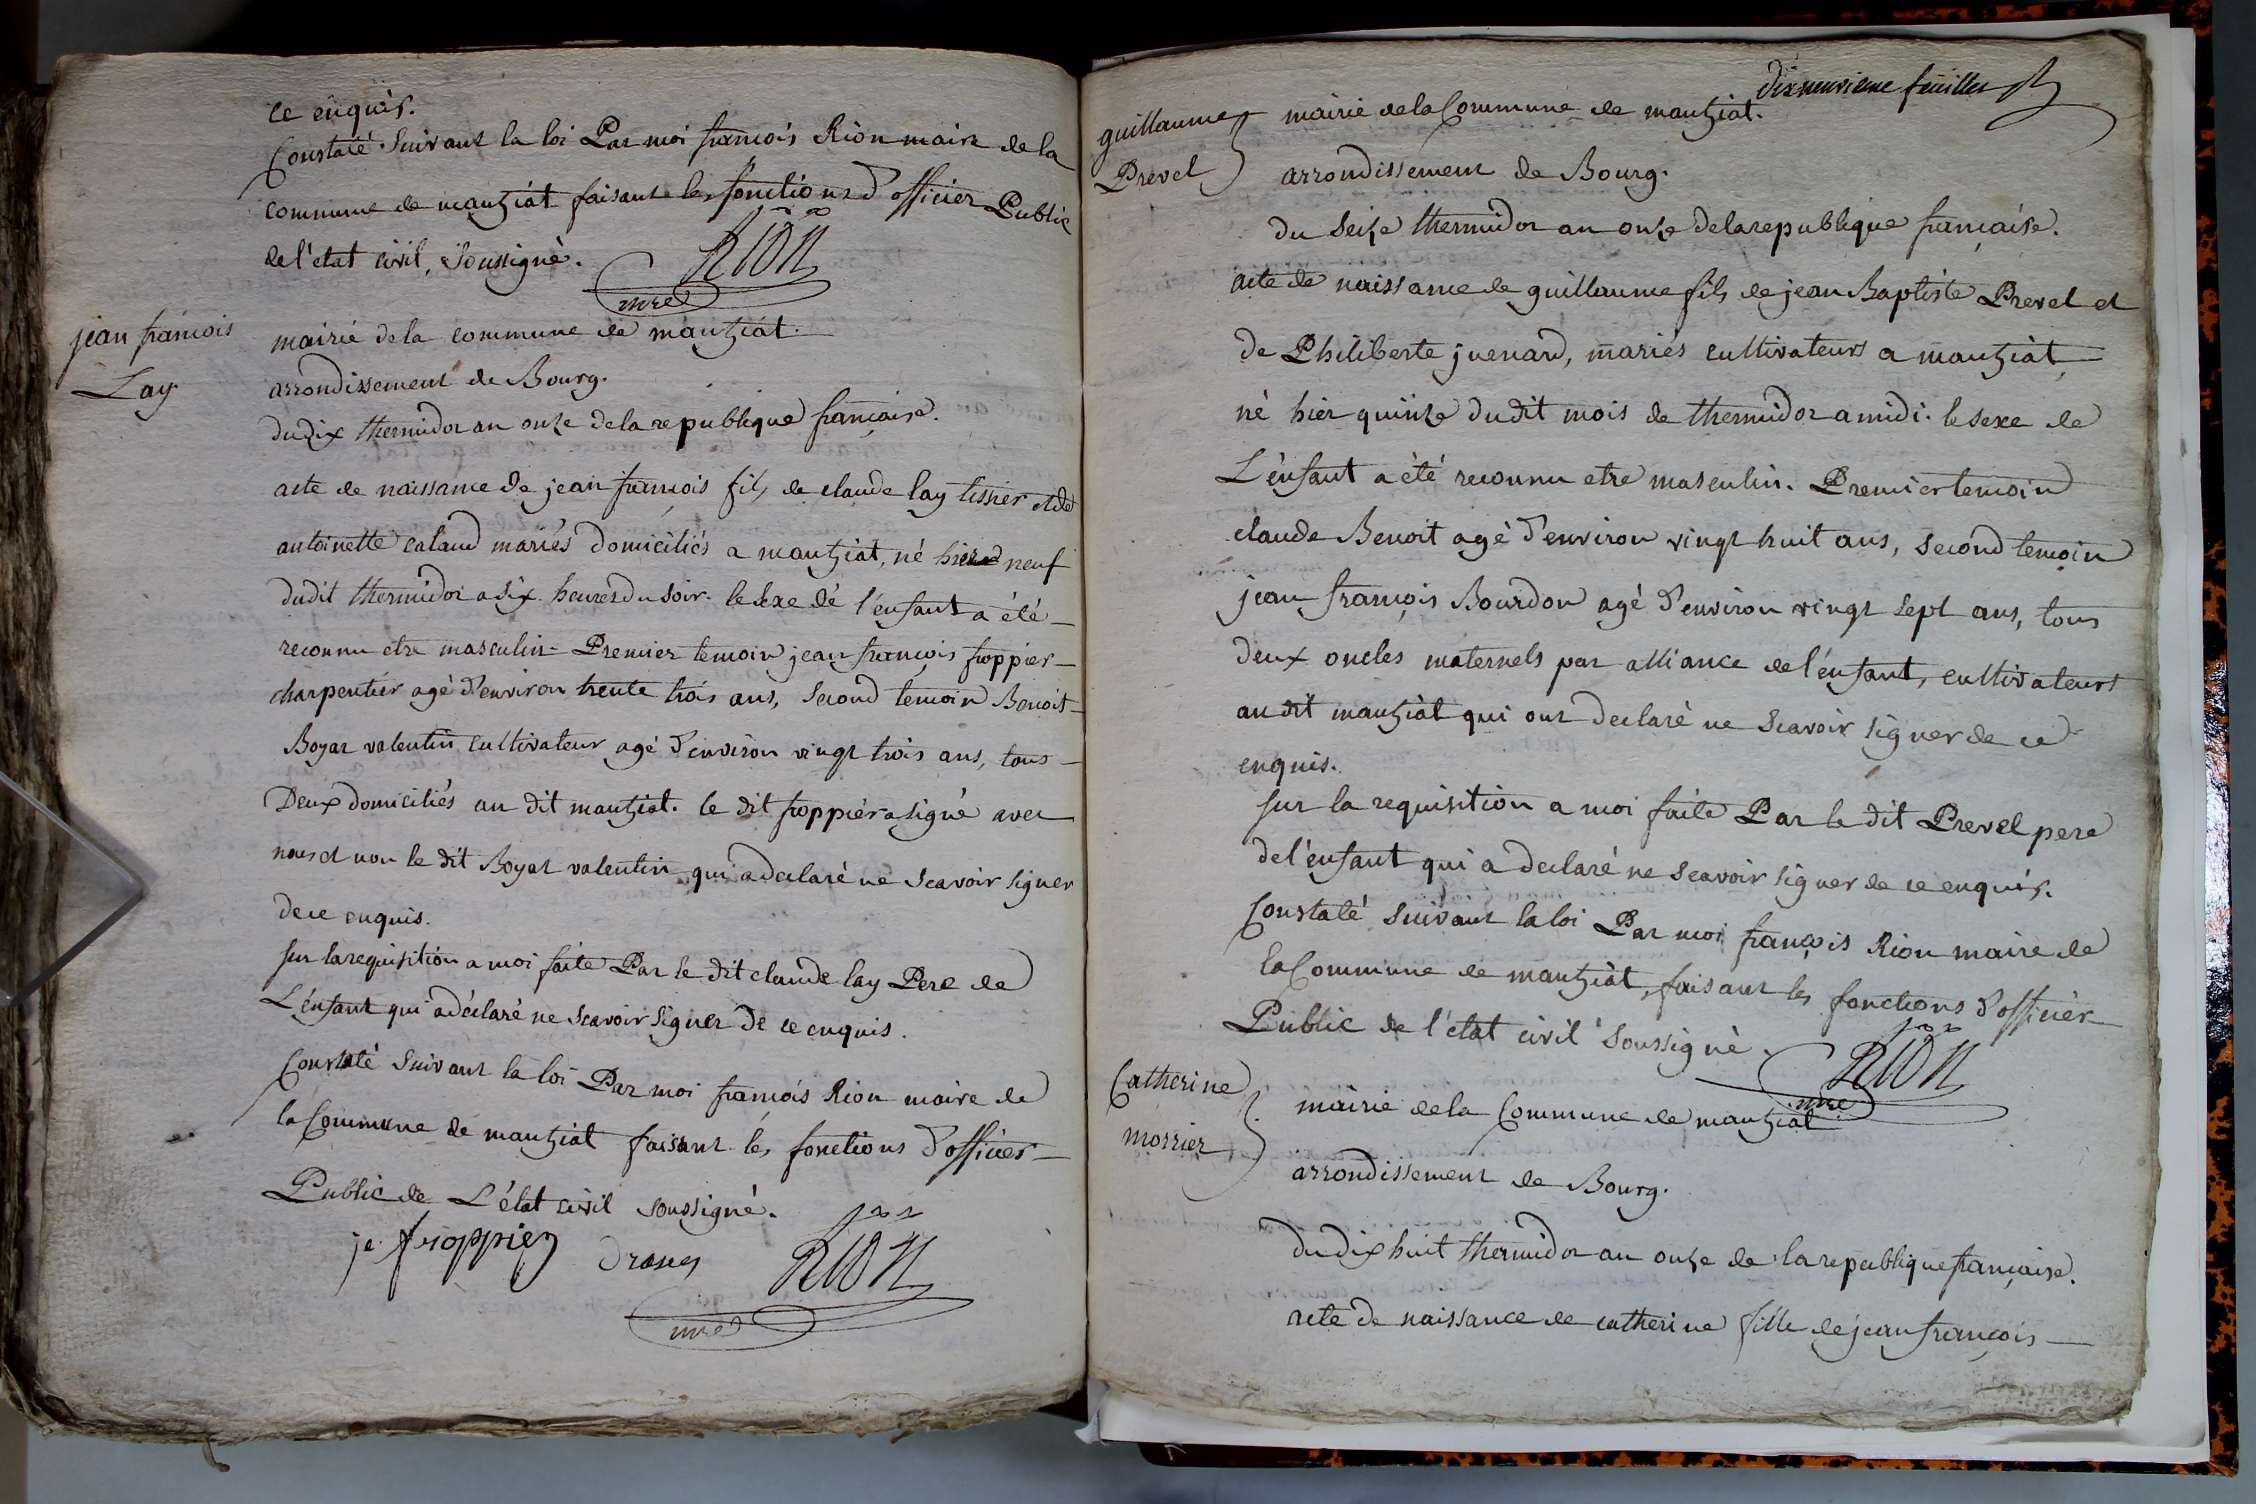 ce enquis.
Constaté suivant la loi Par moi françois Rion maire de la
commune de mantziat faisant les fonctions d'officier Public
de l'état civil, soussigné.
RION
mre
jean françois
Lay
mairie de la commune de mantziat.
arrondissement de Bourg.
du dix thermidor an onze de la republique française.
acte de naissance de jean françois fils de claude lay tissier et de
antoinette caland mariés domiciliés a mantziat, né hier neuf
dudit thermidor a six heures du soir. le sexe de l'enfant a été
reconnu etre masculin - Premier temoin jean françois froppier
charpentier agé d'environ trente trois ans, second temoin Benoit
Boyat valentin cultivateur agé d'environ vingt trois ans, tous
Deux domiciliés au dit mantziat. le dit froppier a signé avec
nous et non le dit Boyat valentin qui a declaré ne scavoir signer
de ce enquis.
sur la requisition a moi faite Par le dit claude lay Pere de
L'énfant qui a déclaré ne scavoir signer de ce enquis.
Constaté suivant la loi Par moi françois Rion maire de
la Commune de mantziat faisant les fonctions d'officier
Public de L'état civil soussigné.
froppier
RION
mre
dixneuvieme feuillet
guillaume
Prevel
mairie de la Commune de mantziat.
arrondissement de Bourg.
du seize thermidor an onze de la republique française.
acte de naissance de guillaume fils de jean Baptiste Prevel et
de Philiberte juenard, mariés cultivateurs a mantziat,
né hier quinze dudit mois de thermidor a midi. le sexe de
L'énfant a été reconnu etre masculin. Premier temoin
claude Benoit agé d'environ vingt huit ans, second temoin
jean françois Bourdon agé d'environ vingt sept ans, tous
deux oncles maternels par alliance de l'énfant, cultivateurs
au dit mantziat qui ont declaré ne scavoir signer de ce
enquis.
sur la requisition a moi faite Par le dit Prevel pere
de l'énfant qui a declaré ne scavoir signer de ce enquis.
Constaté suivant la loi Par moi françois Rion maire de
la Commune de mantziat, faisant les fonctions d'officier
Public de l'état civil soussigné.
RION
mre
Catherine
morrier
mairie de la Commune de mantziat
arrondissement de Bourg.
du dix huit thermidor an onze de la republique française.
acte de naissance de catherine fille de jean françois